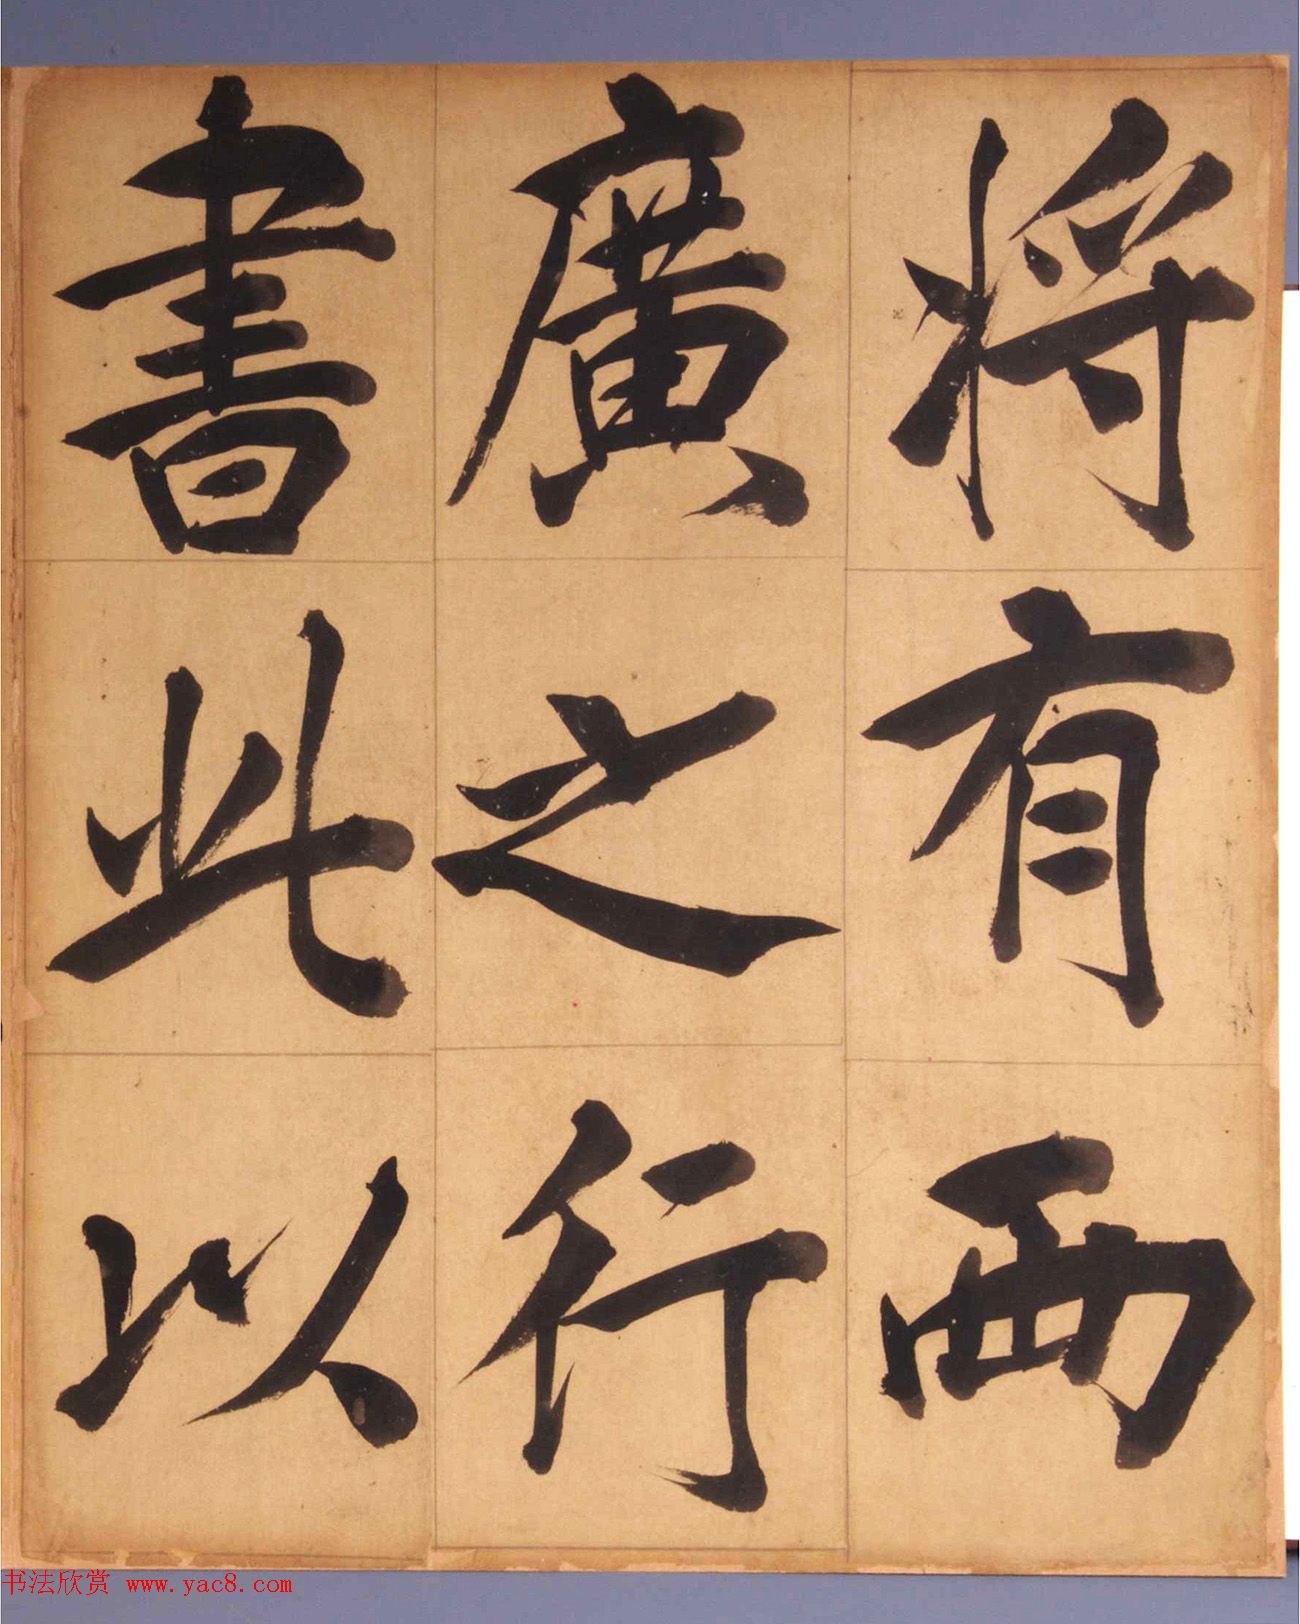 将有西
廣之行
書此以
书法欣赏 www.yac8.com